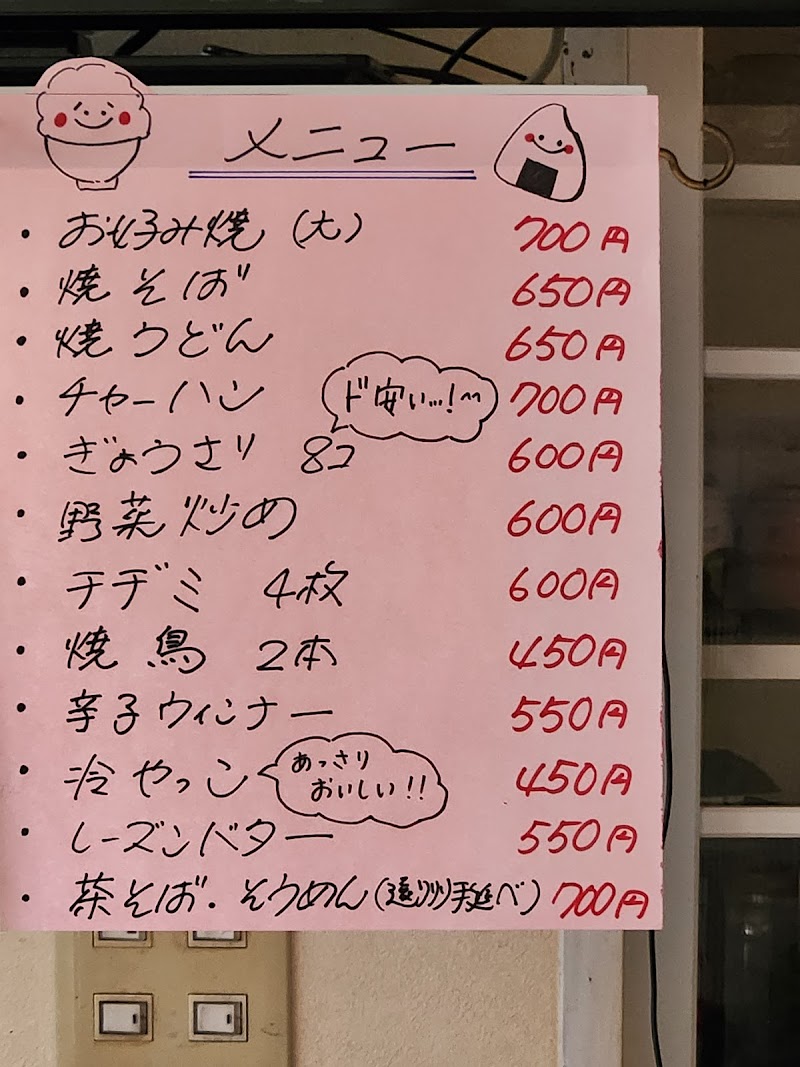 メニュー
・お好み焼(大) 700円
・焼そば 650円
・焼うどん 650円
・チャーハン 700円
ド安い…!
・ぎょうさり 8コ 600円
・野菜炒め 600円
・チヂミ 4枚 600円
・焼鳥 2本 450円
・辛子ウィンナー 550円
・冷やっこ 450円
あっさり
おいしい!!
・レーズンバター 550円
・茶そば・そうめん(播州手延べ) 700円